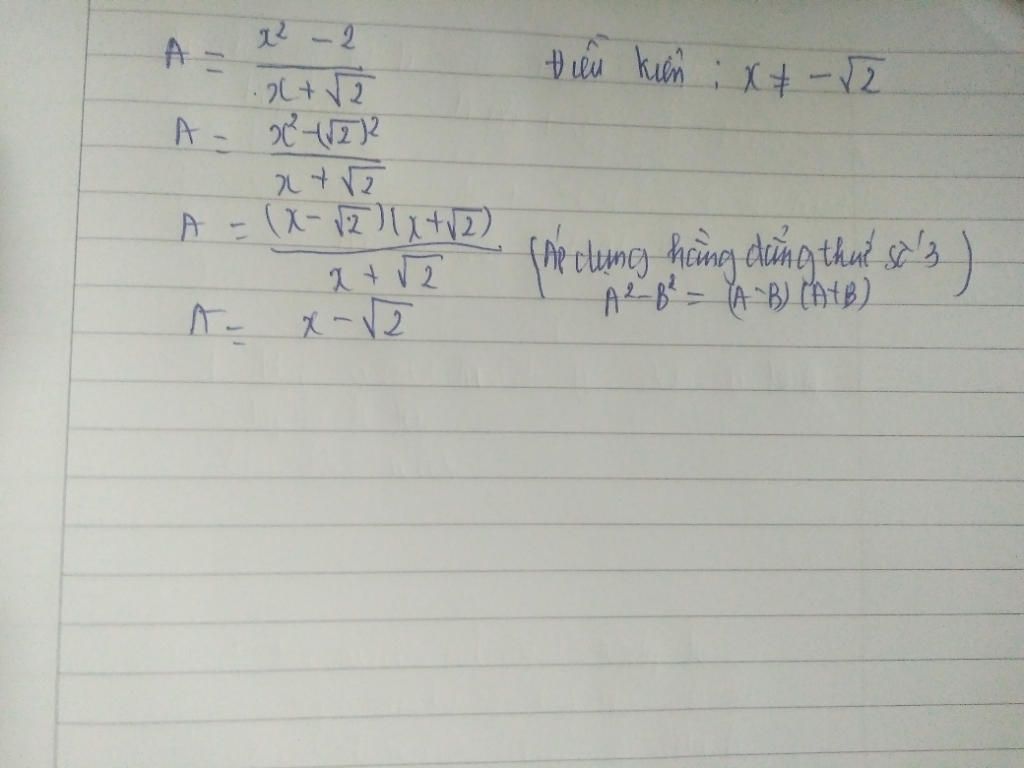 A = x² - 2 / x + √2 Điều kiện : x ≠ -√2
A = x² - (√2)² / x + √2
A = (x - √2)(x + √2) / x + √2 (Áp dụng hằng đẳng thức số 3
A² - B² = (A - B)(A + B))
A = x - √2